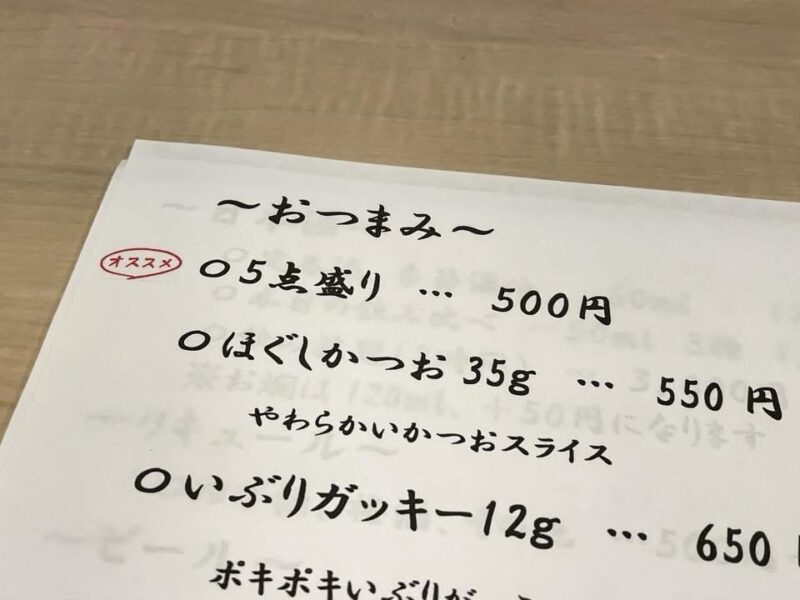 ～おつまみ～
オススメ ○5点盛り … 500円
○ほぐしかつお 35g … 550円
やわらかいかつおスライス
○いぶりガッキー12g … 650
ポキポキいぶりが